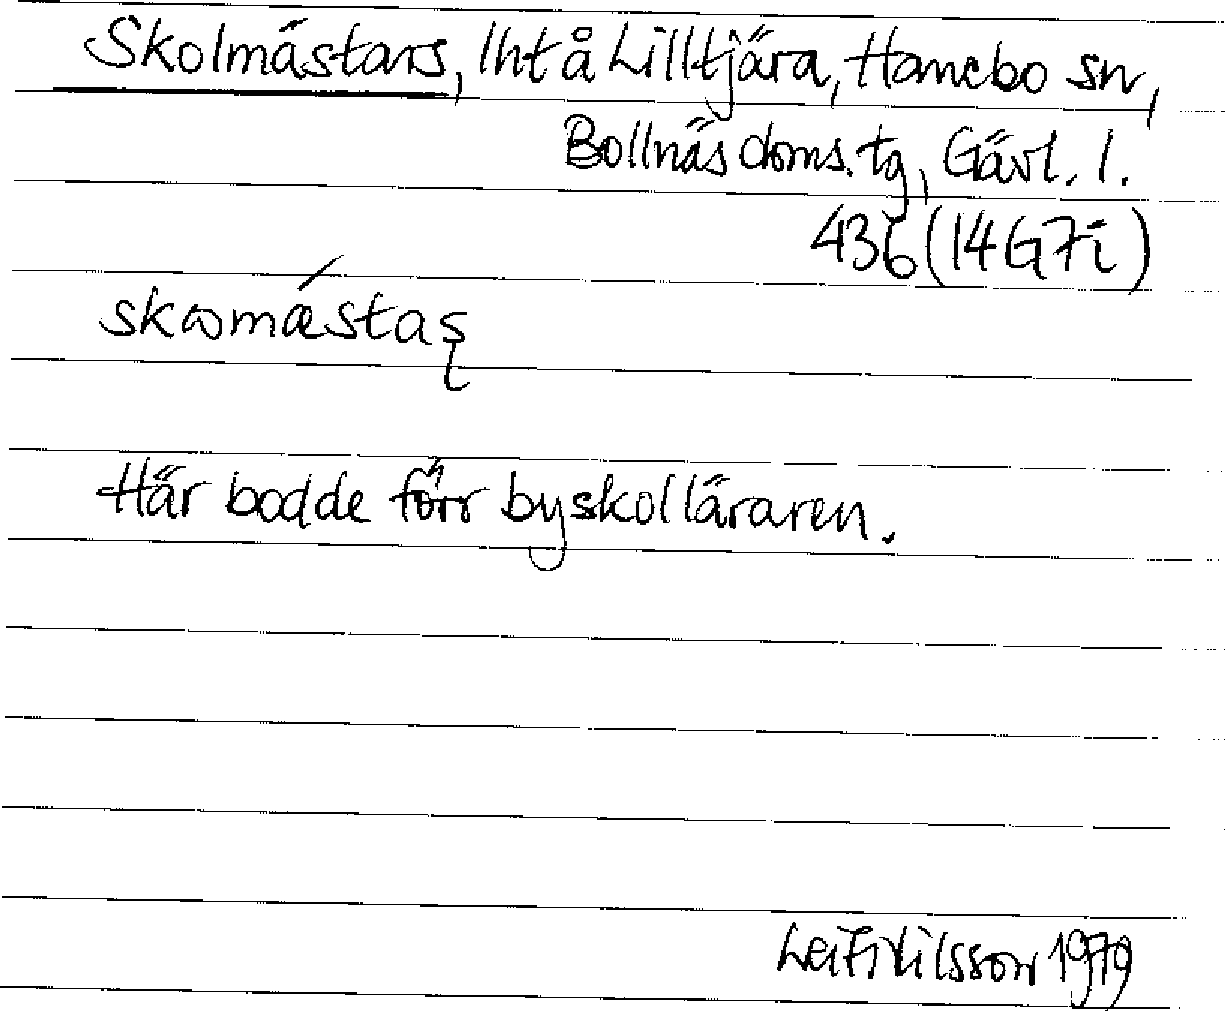 Skolmästars, lht å Lilltjära, Hanebo sn,
Bollnäs doms. tg, Gävl. l.
436 (14G7i)
skωmæ´staş
Här bodde förr byskolläraren.
Leif Nilsson 1979